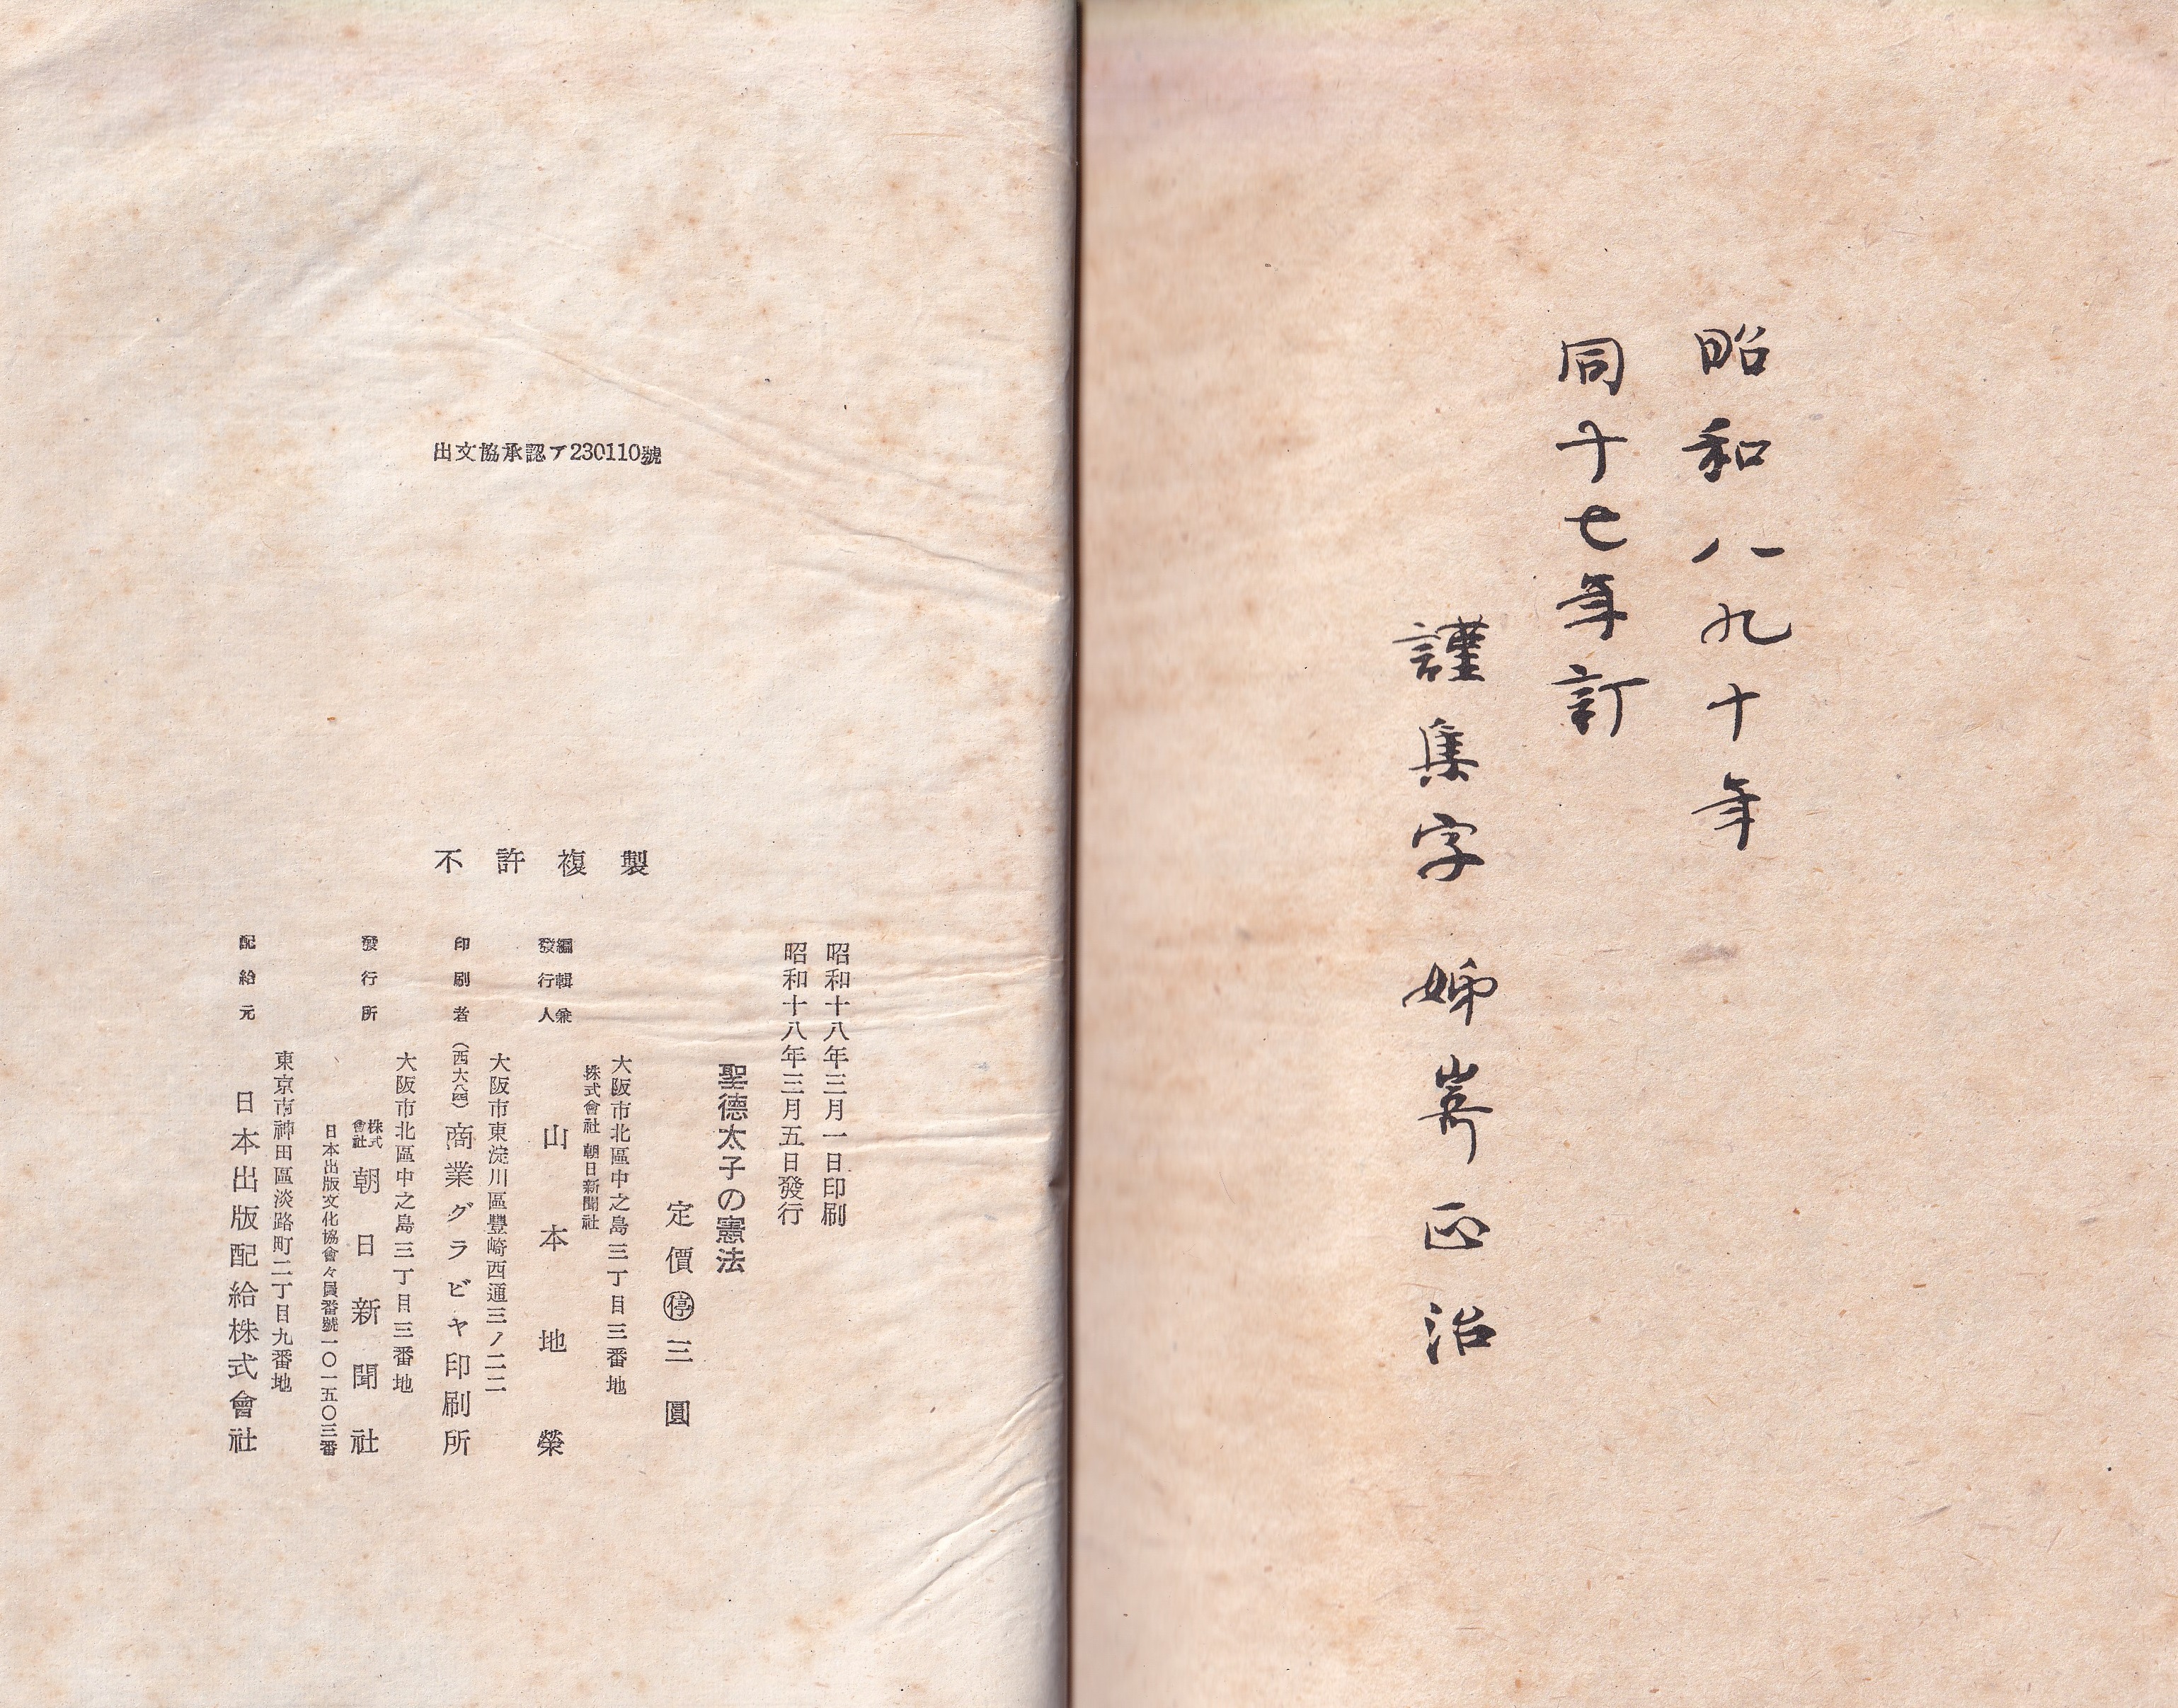 昭和八九十年
同十七年訂
謹集字 姉嵜正治
出文協承認ア230110號
不許複製
昭和十八年三月一日印刷
昭和十八年三月五日發行
聖德太子の憲法
定價 停 三圓
大阪市北區中之島三丁目三番地
株式會社 朝日新聞社
編輯兼
發行人 山本地榮
大阪市東淀川區豐崎西通三ノ二二
印刷者 (西大八四) 商業グラビヤ印刷所
大阪市北區中之島三丁目三番地
發行所 株式會社 朝日新聞社
日本出版文化協會々員番號一〇一五〇三番
東京市神田區淡路町二丁目九番地
配給元 日本出版配給株式會社